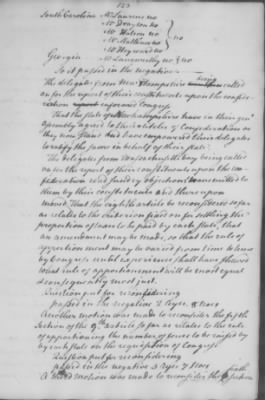 South Carolina Mr Laurens no
Mr Drayton no
Mr Hutson no
Mr Mathews no
Mr Heyward no
no
Georgia Mr Langworthy no } no
So it passed in the negative
The delegates from New Hampshire being called
on for the report of their constituents upon the confed
eration informed Congress
That the state of New Hampshire have in their gen
assembly agreed to the articles of Confederation as
they now stand and have empowered their delegates
to ratify the same in behalf of their state.
The delegates from Massachusetts bay being called
on for the report of their constituents upon the con
federation read sundry objections transmitted to
them by their constituents and thereupon
moved, That the eighth article be reconsidered so far
as relates to the criterion fixed on for settling the
proportion of taxes to be paid by each state, that
an amendment may be made, so that the rule of
apportionment may be varied from time to time
by Congress until experience shall have shewed
what rule of apportionment will be most equal
& consequently most just.
Question put for reconsidering
passed in the negative 2 Ayes, 8 noes
Another motion was made to reconsider the fifth
section of the 9th article so far as relates to the rule
of apportioning the number of forces to be raised by
each state on the requisition of Congress
Question put for reconsidering
passed in the negative 3 Ayes 7 Noes
A third motion was made to reconsider the sixth section